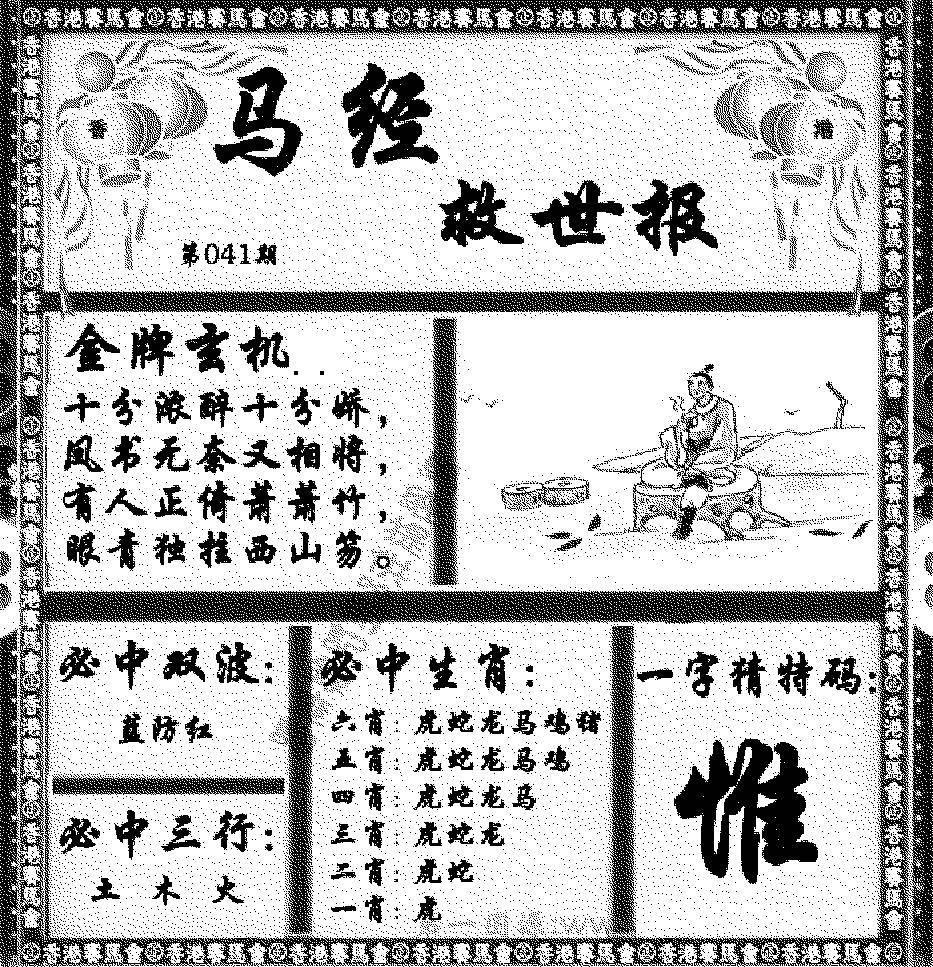 香港賽馬會 香港賽馬會 香港賽馬會 香港賽馬會 香港賽馬會 香港賽馬會 香港賽馬會
香 港
马经
救世报
第041期
金牌玄机..
十分浓醉十分娇,
凤书无奈又相将,
有人正倚萧萧竹,
眼青独挂西山笏。
必中双波:
蓝防红
必中三行:
土 木 火
必中生肖:
六肖:虎蛇龙马鸡猪
五肖:虎蛇龙马鸡
四肖:虎蛇龙马
三肖:虎蛇龙
二肖:虎蛇
一肖:虎
一字猜特码:
惟
香港賽馬會 香港賽馬會 香港賽馬會 香港賽馬會 香港賽馬會 香港賽馬會 香港賽馬會